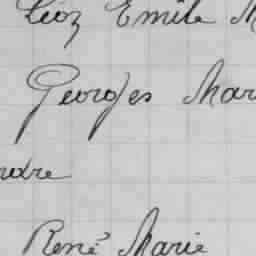 Léon Emile M
Georges Mar
ndre
René Marie